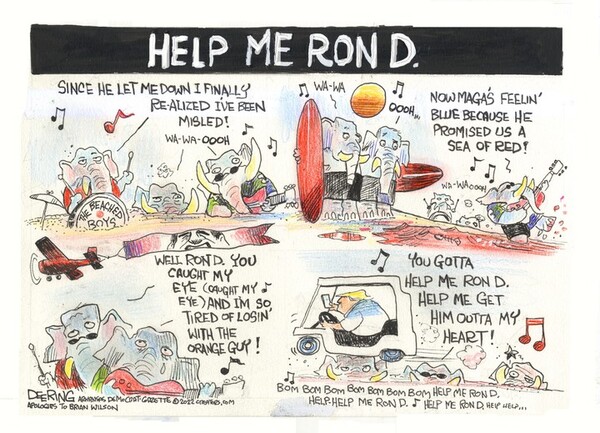 HELP ME RON D.
SINCE HE LET ME DOWN I FINALLY
RE-ALIZED I'VE BEEN
MISLED!
WA-WA-OOOH
THE BEACHED
BOYS
WA-WA
OOOH...
NOW MAGA'S FEELIN'
BLUE BECAUSE HE
PROMISED US A
SEA OF RED!
WA-WAOOOH
WELL RON D. YOU
CAUGHT MY
EYE (CAUGHT MY
EYE) AND I'M SO
TIRED OF LOSIN'
WITH THE
ORANGE GUY!
YOU GOTTA
HELP ME RON D.
HELP ME GET
HIM OUTTA MY
HEART!
BOM BOM BOM BOM BOM BOM BOM HELP ME RON D.
HELP-HELP ME RON D. HELP ME RON D, HELP HELP...
DEERING ARKANSAS DEMOCRAT-GAZETTE © 2022 CREATORS.COM
APOLOGIES TO BRIAN WILSON